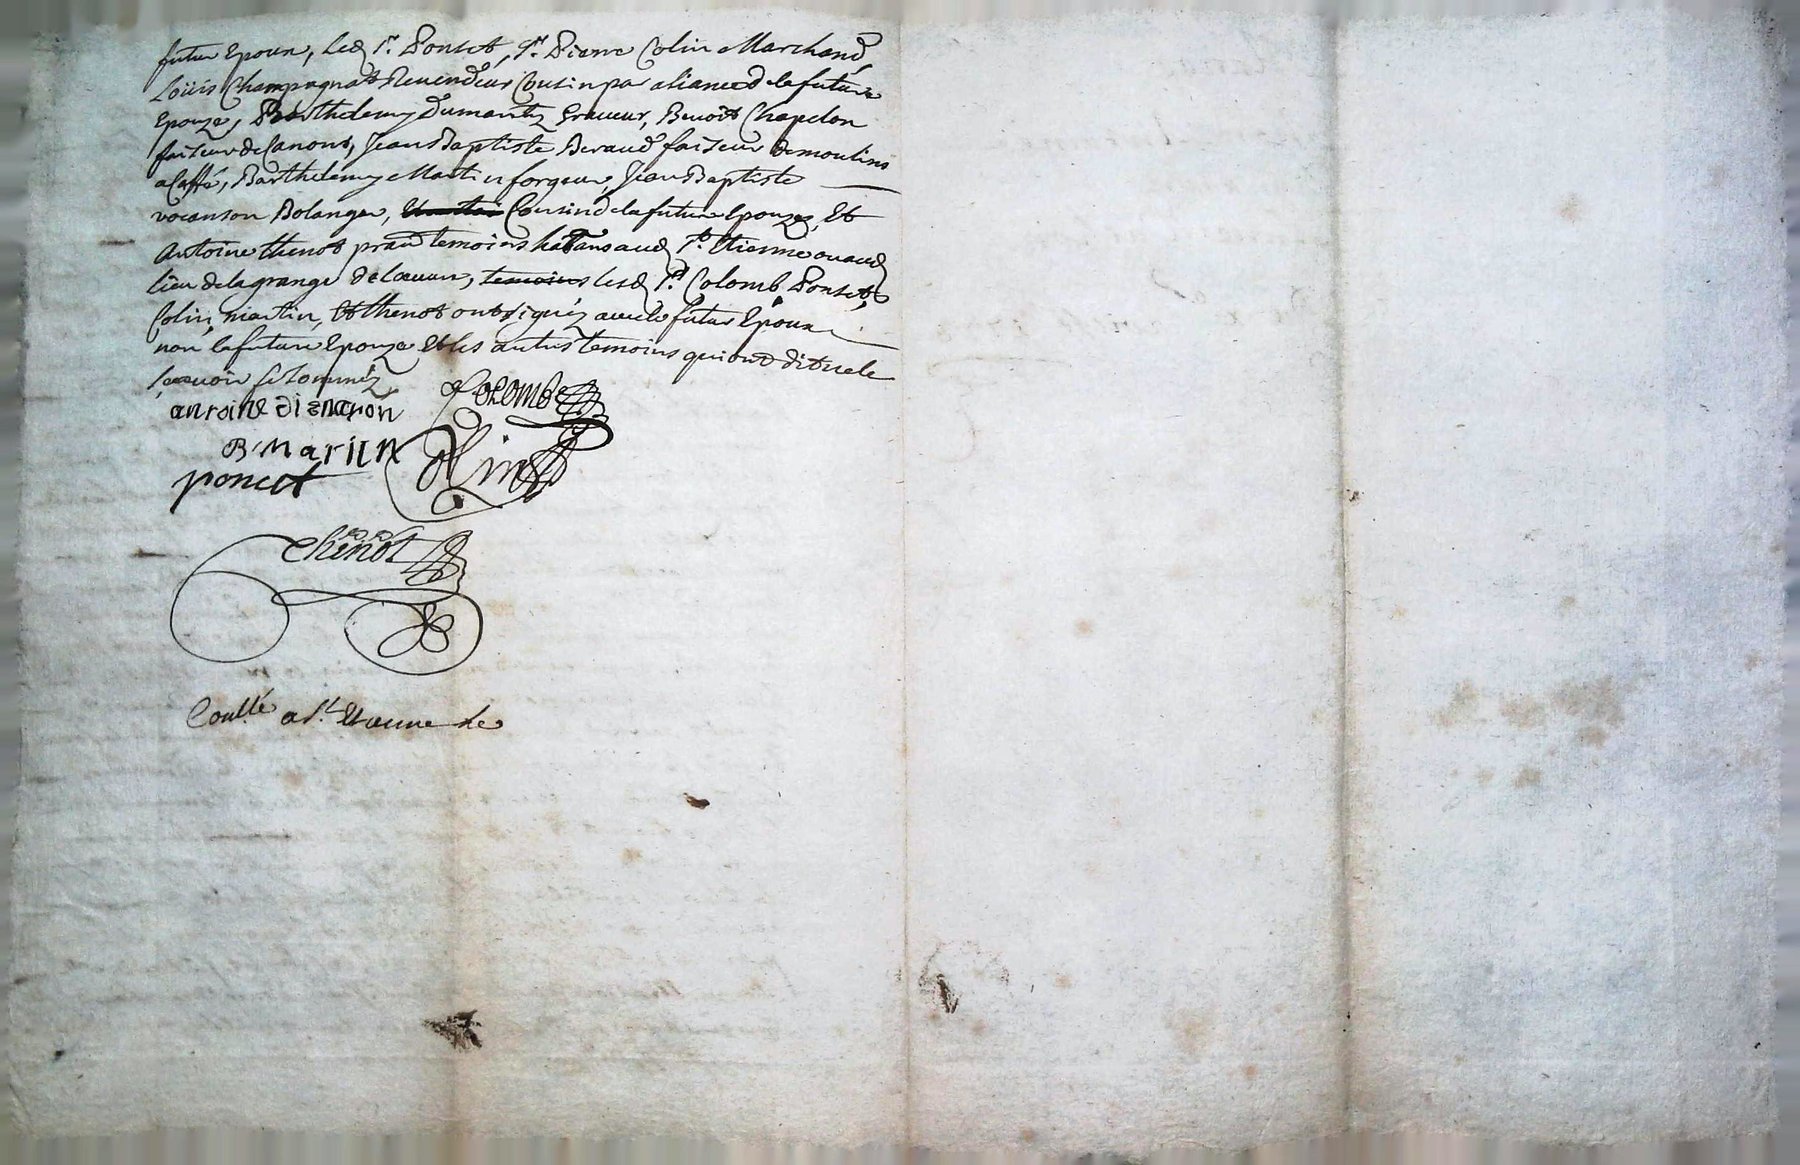 futur Epoux, led. Sr. Ponset, Sr. Pierre Colin Marchand,
Loüis Champagnat Revendeur Cousin par aliance de la future
Epouze, Barthelemy Dumarttz Graveur, Benoît Chapelon
faiseur de Canons, Jean Baptiste Beraud faiseur de moulins
a Caffé, Barthelemy Martin forgeur, Jean Baptiste
vocanson Bolanger, Cousin de la future Epouze, Et
Antoine thenot temoins habitans aud. St. Etienne ou aud.
lieu de la grange de Loeuvre, temoins lesd. Srs. Colomb Ponset,
Colin, martin, Et thenot ont signéz avec le futur Epoux
non la future Epouze Et les autres temoins qui ont dit ne le
scavoir de ce sommés
antoine
Colombe
B. Martin
Colin
poncet
thenot
Conllé a St. Etienne le